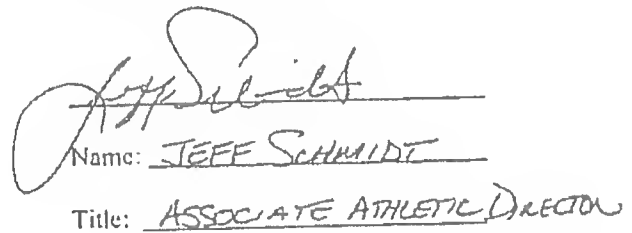 Jeff Schmidt
Name: JEFF SCHMIDT
Title: ASSOCIATE ATHLETIC DIRECTOR